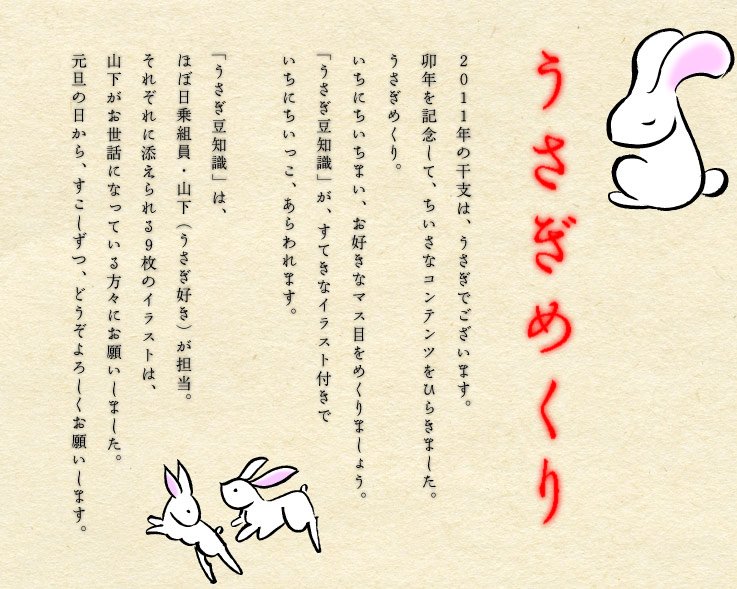 うさぎめくり
2011年の干支は、うさぎでございます。
卯年を記念して、ちいさなコンテンツをひらきました。
うさぎめくり。
いちにちいちまい、お好きなマス目をめくりましょう。
「うさぎ豆知識」が、すてきなイラスト付きで
いちにちいっこ、あらわれます。
「うさぎ豆知識」は、
ほぼ日乗組員・山下（うさぎ好き）が担当。
それぞれに添えられる9枚のイラストは、
山下がお世話になっている方々にお願いしました。
元旦の日から、すこしずつ、どうぞよろしくお願いします。